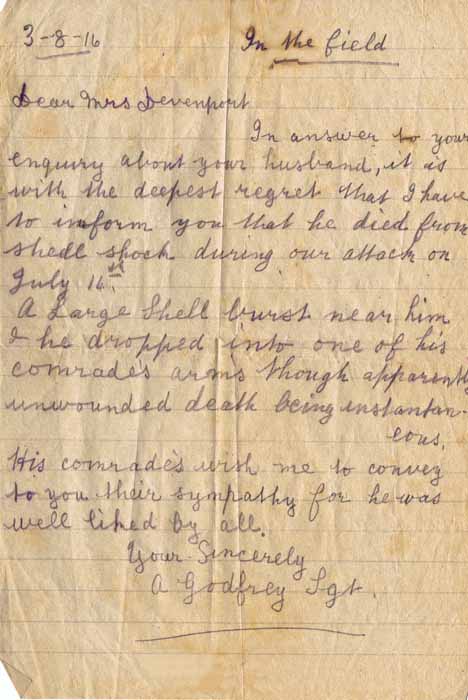 3-8-16 In the field
Dear Mrs Devenport
In answer to your
enquiry about your husband, it is
with the deepest regret that I have
to inform you that he died from
shell shock during our attack on
July 14th.
A Large Shell burst near him
& he dropped into one of his
comrade's arms though apparently
unwounded death being instantan-
eous.
His comrade's wish me to convey
to you their sympathy for he was
well liked by all.
Your Sincerely
A Godfrey Sgt.